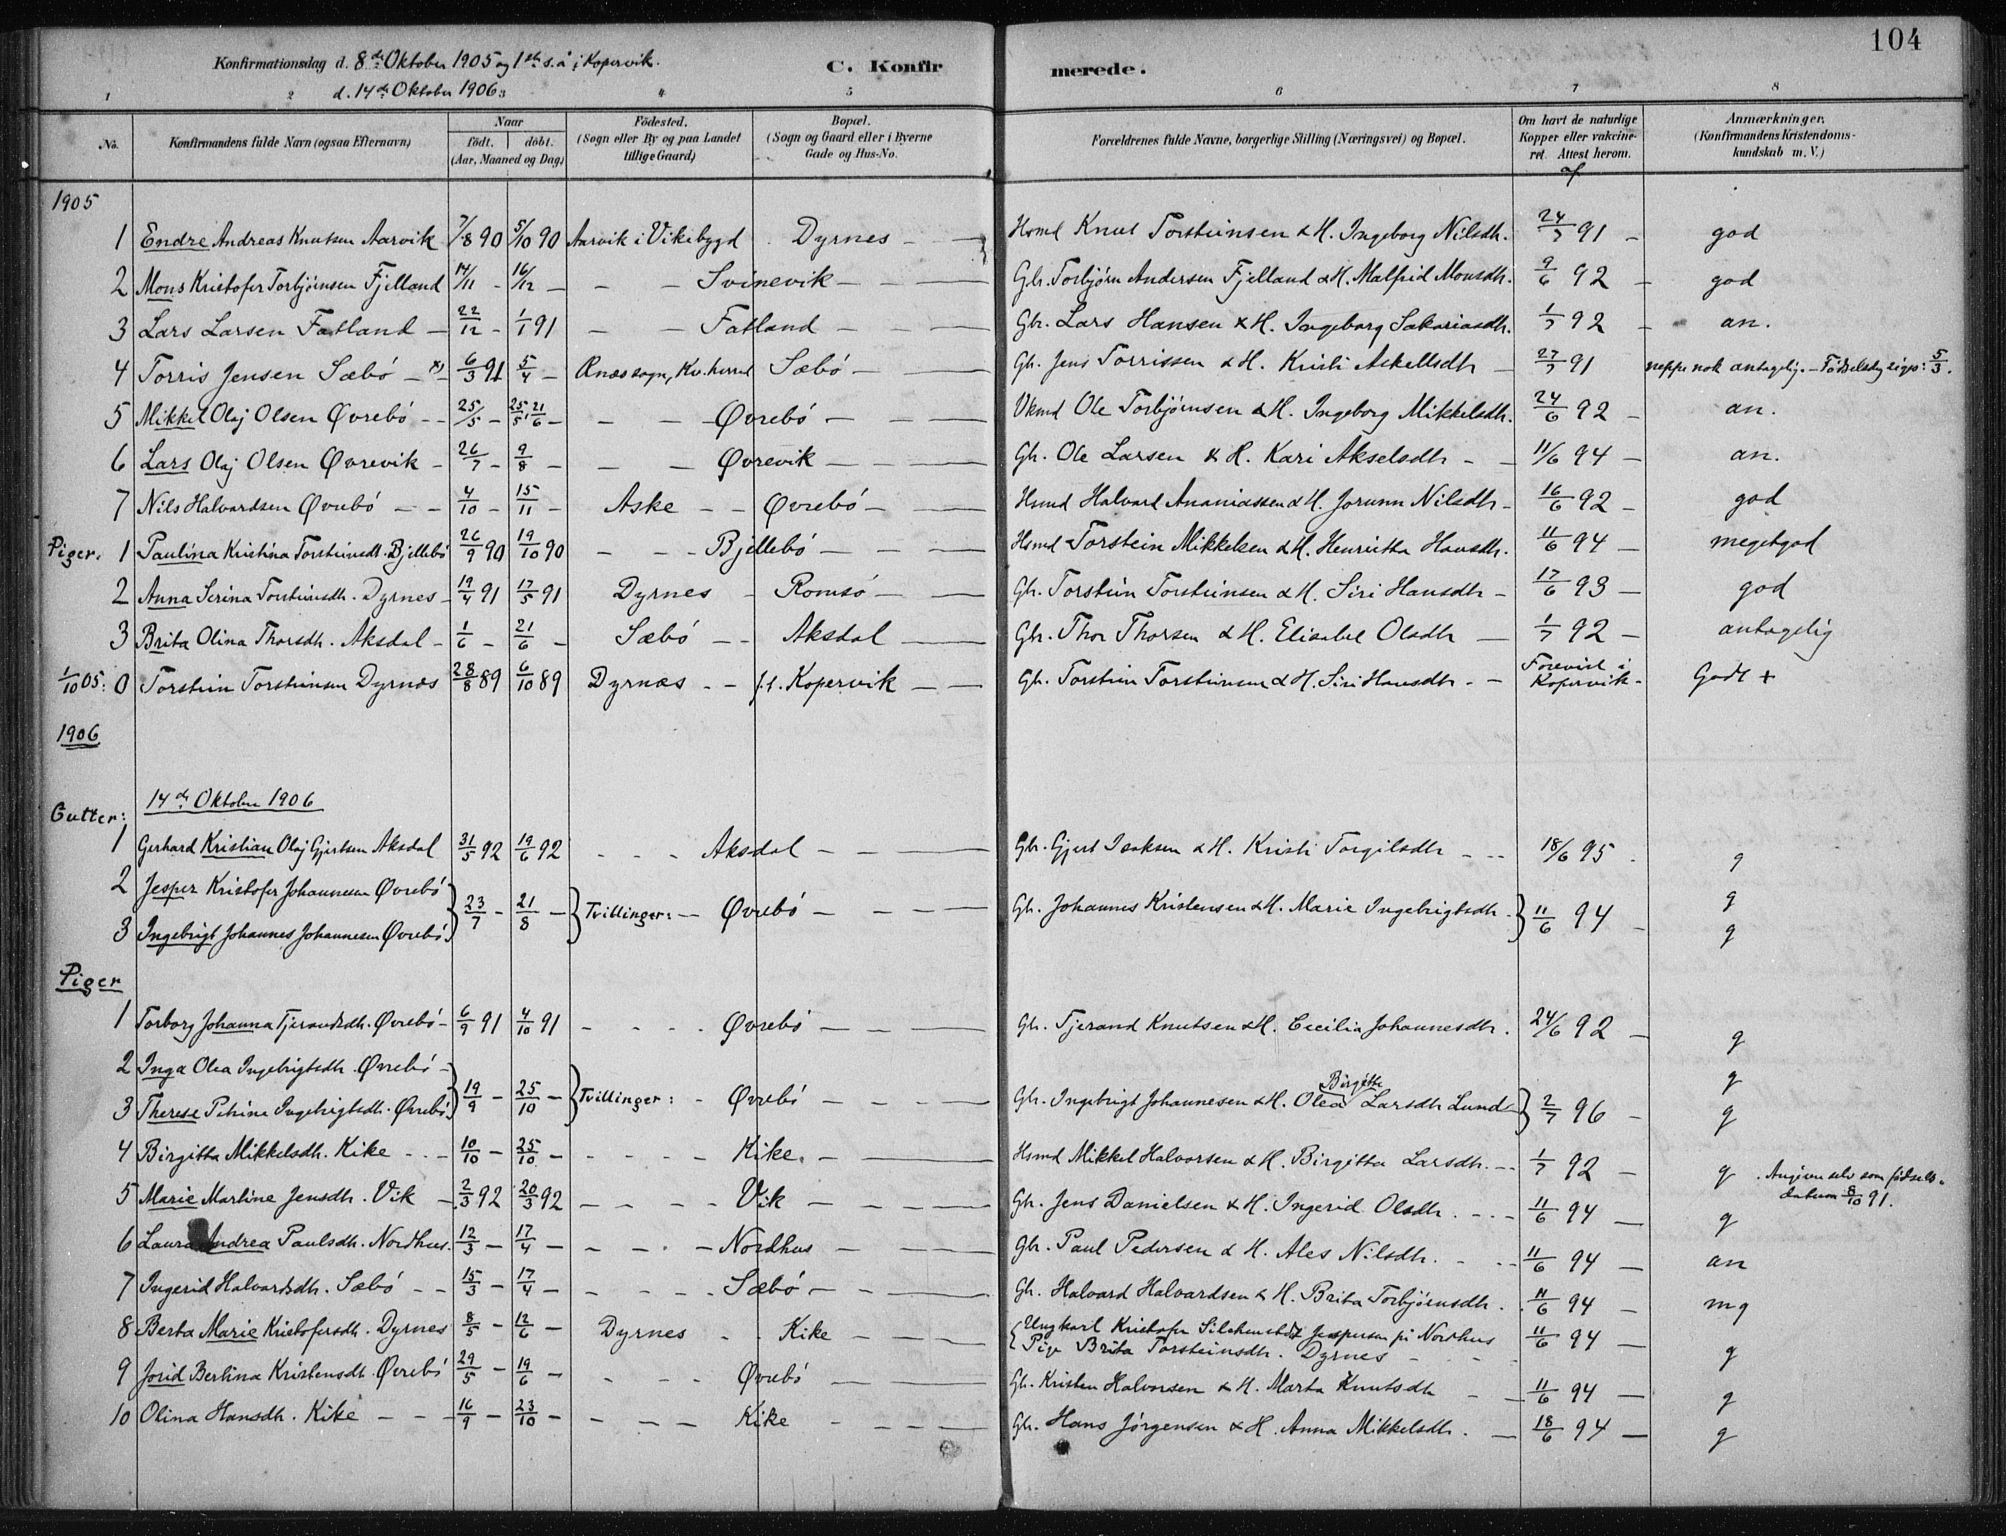 104
Konfirmationsdag d. 8de Oktober 1905 og 1ste s. å i Kopervik.
d. 14de Oktober 1906
C. Konfirmerede.
1 2 3 4 5 6 7 8
No. Konfirmandens fulde Navn (ogsaa Efternavn) Naar født. døbt. (Aar, Maaned og Dag) Fødested. (Sogn eller By og paa Landet tillige Gaard) Bopæl. (Sogn og Gaard eller i Byerne Gade og Hus-No. Forældrenes fulde Navne, borgerlige Stilling (Næringsvei) og Bopæl. Om havt de naturlige Kopper eller vakcineret. Attest herom. Anmærkninger. (Konfirmandens Kristendomskundskab m. V.)
1905
1 Endre Andreas Knutsen Aarvik 7/8 90 5/10 90 Aarvik i Vikebygd Dyrnes Hsmd Knut Torsteinsen & H. Ingeborg Nilsdh. 24/7 91 god
2 Mons Kristofer Torbjørnsen Fjelland 14/11 - 16/12 - - - Svinevik Gbr. Torbjørn Andersen Fjelland & H. Malfrid Monsdh. 9/6 92 god
3 Lars Larsen Fatland 22/12 - 1/1 91 - - Fatland Gbr. Lars Hansen & H. Ingeborg Sakariasdh. 1/7 92 an.
4 Torris Jensen Sæbö 6/3 91 5/4 - Ånæs sogn, Kv.herred Sæbö Gh. Jens Torrissen & H. Kristi Askellsdh 27/7 91 neppe nok antagelig. - Fødselsdag siges: 5/3.
5 Mikkel Olaj Olsen Øvrebö 25/5 - 25/5, 21/6 - - - Øvrebö Ole Torbjørnsen & H. Ingeborg Mikkelsdh. 24/6 92 an.
6 Lars Olaj Olsen Øvrevik 26/7 - 9/8 - - - Øvrevik Gh. Ole Larsen & H. Kari Akselsdh 11/6 94 an.
7 Nils Halvardsen Øvrebö 4/10 - 15/11 - Aske Øvrebö Hsmd Halvard Ananiassen & H. Jorunn Nilsdh 16/6 92 god
Piger. 1 Paulina Kristina Torsteinsdh. Bjellebö 26/9 90 19/10 90 - - Bjellebö Hsmd Torstein Mikkelsen & H. Henrietta Hansdh. 11/6 94 meget god
2 Anna Serina Torsteinsdh. Dyrnes 19/4 91 17/5 91 Dyrnes Romsö Gh. Torstein Torsteinsen & H. Siri Hansdh 17/6 93 god
3 Brita Olina Thorsdh. Aksdal 1/6 - 21/6 - Sæbö Aksdal Gbr. Thor Thorsen & H. Elisabet Olsdh 1/7 92 antagelig
1/10 05: 0 Torstein Torsteinsen Dyrnæs 28/8 89 6/10 89 Dyrnæs f.t. Kopervik Gh. Torstein Torsteinsen & H. Siri Hansdh Forevist i Kopervik. Godt +
1906
14de Oktober 1906
Gutter:
1 Gerhard Kristian Olaj Gjertsen Aksdal 31/5 92 19/6 92 - - - Aksdal Gbr. Gjert Isaksen & H. Kristi Torgilsdh 18/6 95 g
2 Jesper Kristofer Johannesen Øvrebö g
3 Ingebrigt Johannes Johannesen Øvrebö 23/7 - 21/8 - Tvillinger: - Øvrebö Gh. Johannes Kristensen & H. Marie Ingebrigtsdh 11/6 94 g
Piger
1 Torborg Johanna Tjerandsdh. Øvrebö 6/9 91 4/10 91 - - - Øvrebö Gh. Tjerand Knutsen & H. Cecilia Johannesdh. 24/6 92 g
2 Inga Olea Ingebrigtsdh. Øvrebö g
3 Therese Petrina Ingebrigtsdh. Øvrebö 19/9 - 25/10 - Tvillinger: - Øvrebö Gh. Ingebrigt Johannesen & H. Olea Birgitte Larsdh Lund 2/7 96 g
4 Birgitta Mikkelsdh. Kike 10/10 - 25/10 - - - - Kike. Hsmd Mikkel Halvorsen & H. Birgitta Larsdh. 1/7 92 g . Angiven selv som fødselsdatum 8/10 91.
5 Marie Martine Jensdh. Vik 2/3 92 20/3 92 - - - Vik Gh. Jens Danielsen & H. Ingerid Olsdh. 11/6 94 g
6 Laura Andrea Paulsdh. Nordhus. 12/3 - 17/4 - - - - Nordhus Gbr. Paul Pedersen & H. Ales Nilsdh. 11/6 94 an
7 Ingerid Halvardsdh. Sæbö 15/3 - 17/4 - - - - Sæbö Gh. Halvard Halvardsen & H. Brita Torbjørnsdh. 11/6 94 mg
8 Berta Marie Kristofersdh. Dyrnes 8/5 - 12/6 - Dyrnes Kike Ungkarl Kristofer Jespersen på Nordhus Pige Brita Torsteinsdh. Dyrnes 11/6 94 g
9 Jorid Bertina Kristensdh. Øvrebö 29/5 - 19/6 - - - - Øvrebö Gh. Kristen Halvorsen & H. Marta Knutsdh 11/6 94 g
10 Olina Hansdh. Kike 16/9 - 23/10 - - - - Kike Gh. Hans Jørgensen & H. Anna Mikkelsdh. 18/6 94 g